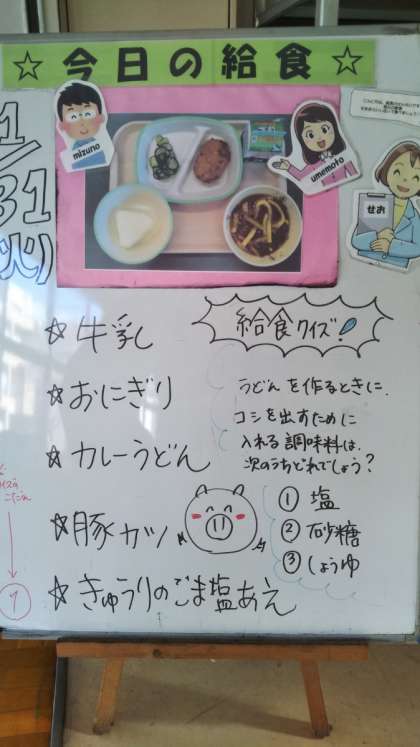 ☆今日の給食☆
1/31(火)
mizuno
umemoto
せお
☆牛乳
☆おにぎり
☆カレーうどん
☆豚カツ
☆きゅうりのごま塩あえ
給食クイズ!
うどんを作るときに、
コシを出すために
入れる調味料は、
次のうちどれでしょう?
① 塩
② 砂糖
③ しょうゆ